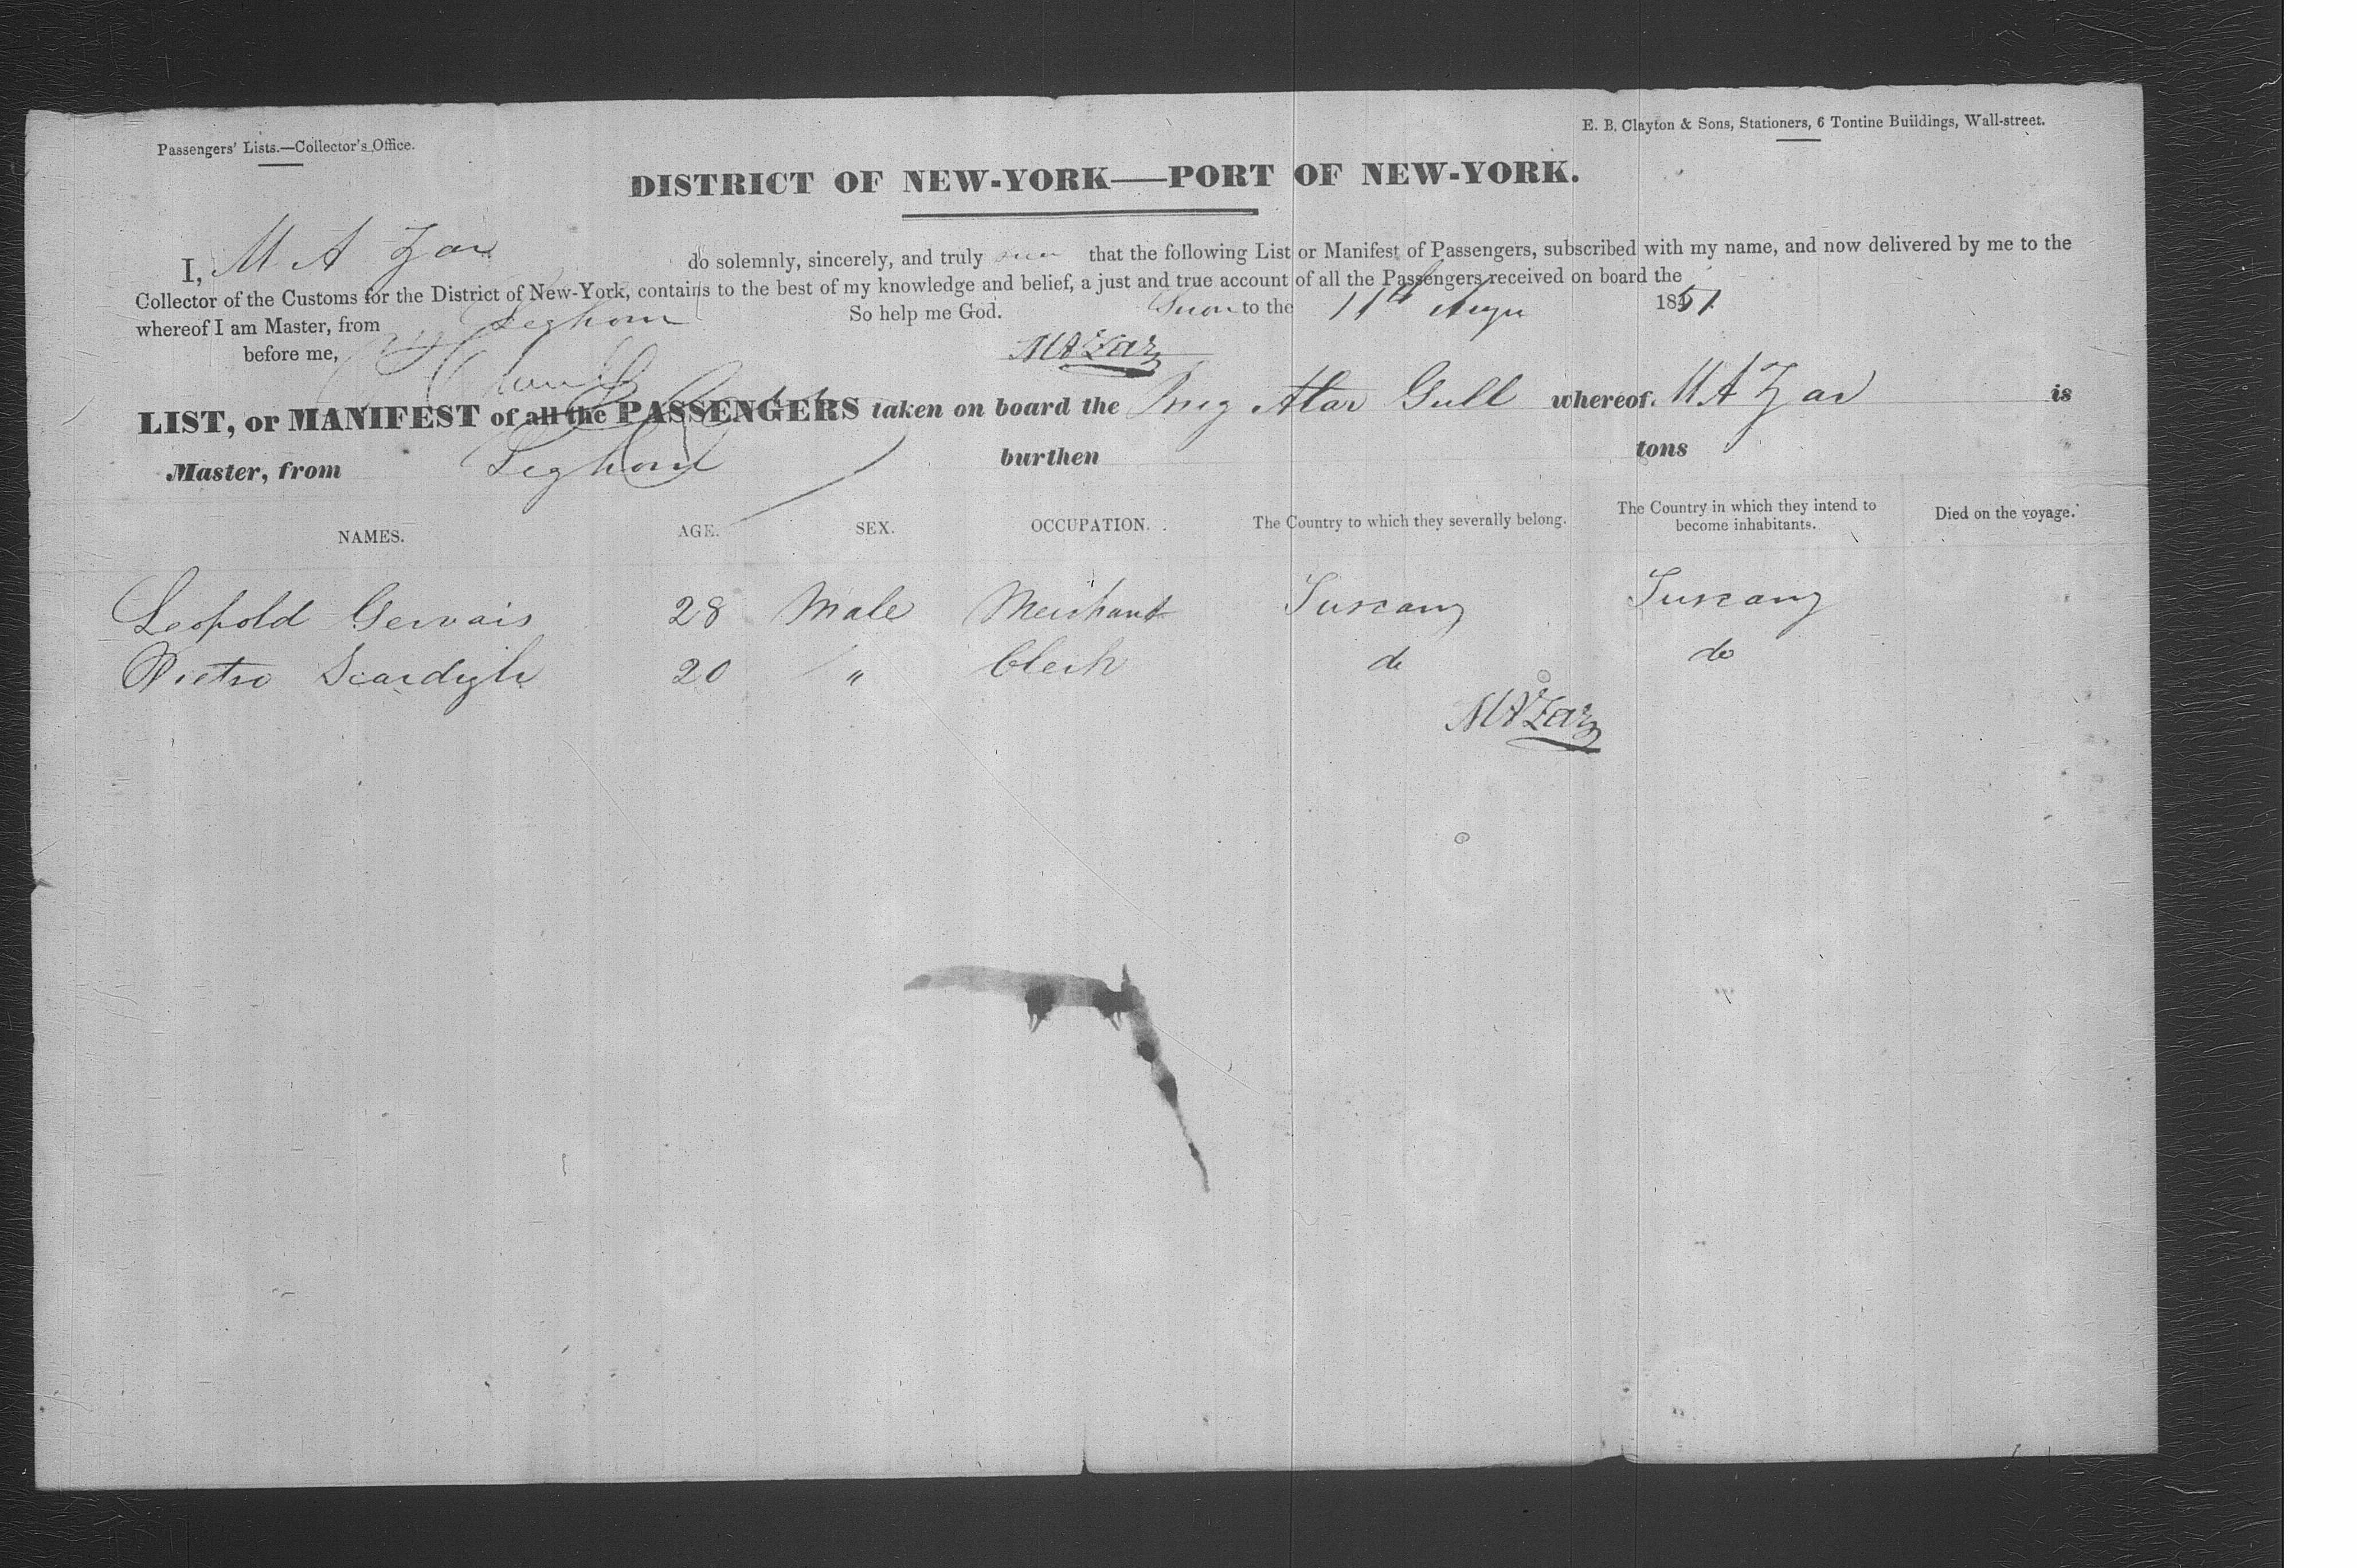 Passengers' Lists.—Collector's Office.
E. B. Clayton & Sons, Stationers, 6 Tontine Buildings, Wall-street.
DISTRICT OF NEW-YORK——PORT OF NEW-YORK.
I, M A Zar do solemnly, sincerely, and truly that the following List or Manifest of Passengers, subscribed with my name, and now delivered by me to the
Collector of the Customs for the District of New-York, contains to the best of my knowledge and belief, a just and true account of all the Passengers received on board the
whereof I am Master, from Leghorn So help me God. Sworn to the 11th Augu 1851
before me, M A Zar
LIST, or MANIFEST of all the PASSENGERS taken on board the Brig Atar Gull whereof M A Zar is
Master, from Leghorn burthen tons
NAMES. AGE. SEX. OCCUPATION. The Country to which they severally belong. The Country in which they intend to become inhabitants. Died on the voyage.
Leopold Gervais 28 Male Merchant Tuscany Tuscany
Pietro Scardigli 20 " Clerk do do
M A Zar